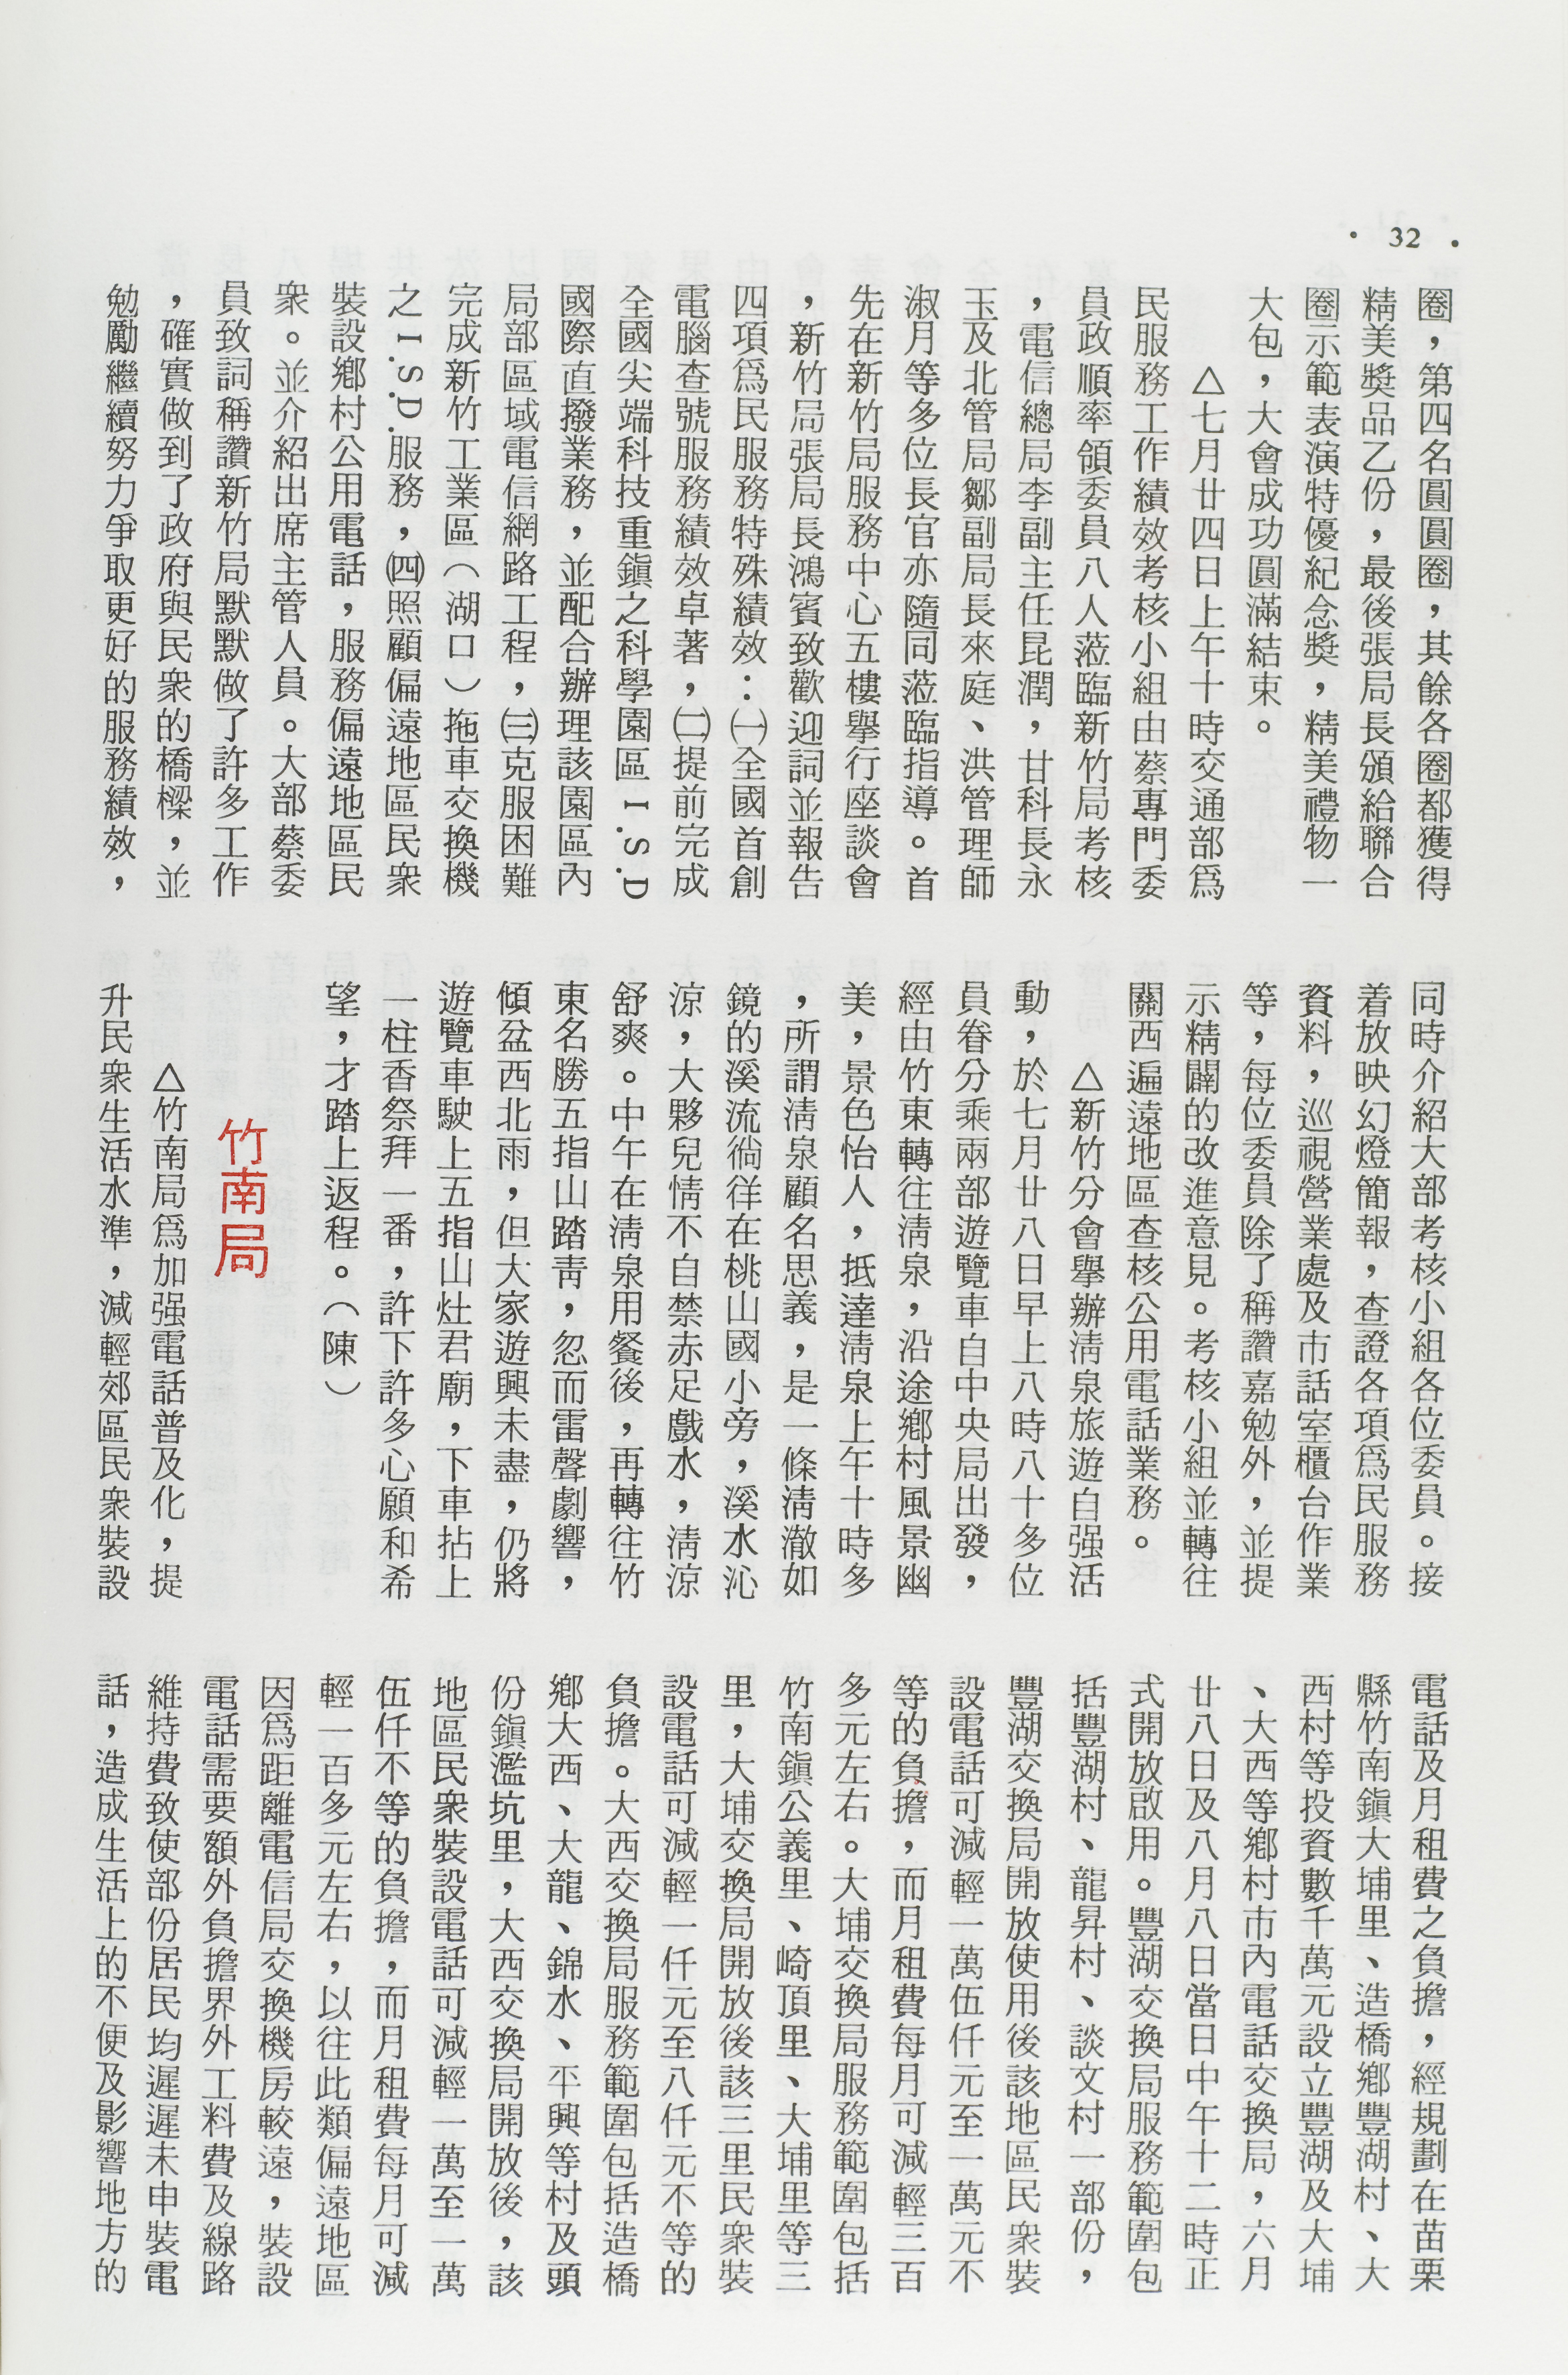 • 32 •
圈，第四名圓圓圈，其餘各圈都獲得
精美獎品乙份，最後張局長頒給聯合
圈示範表演特優紀念獎，精美禮物一
大包，大會成功圓滿結束。
△七月廿四日上午十時交通部爲
民服務工作績效考核小組由蔡專門委
員政順率領委員八人蒞臨新竹局考核
，電信總局李副主任昆潤，甘科長永
玉及北管局鄒副局長來庭、洪管理師
淑月等多位長官亦隨同蒞臨指導。首
先在新竹局服務中心五樓舉行座談會
，新竹局張局長鴻賓致歡迎詞並報告
四項爲民服務特殊績效：㈠全國首創
電腦查號服務績效卓著，㈡提前完成
全國尖端科技重鎭之科學園區I.S.D
國際直撥業務，並配合辦理該園區內
局部區域電信網路工程，㈢克服困難
完成新竹工業區（湖口）拖車交換機
之I.S.D.服務，㈣照顧偏遠地區民衆
裝設鄉村公用電話，服務偏遠地區民
衆。並介紹出席主管人員。大部蔡委
員致詞稱讚新竹局默默做了許多工作
，確實做到了政府與民衆的橋樑，並
勉勵繼續努力爭取更好的服務績效，
同時介紹大部考核小組各位委員。接
着放映幻燈簡報，查證各項爲民服務
資料，巡視營業處及市話室櫃台作業
等，每位委員除了稱讚嘉勉外，並提
示精闢的改進意見。考核小組並轉往
關西遍遠地區查核公用電話業務。
△新竹分會舉辦淸泉旅遊自强活
動，於七月廿八日早上八時八十多位
員眷分乘兩部遊覽車自中央局出發，
經由竹東轉往淸泉，沿途鄉村風景幽
美，景色怡人，抵達淸泉上午十時多
，所謂淸泉顧名思義，是一條淸澈如
鏡的溪流徜徉在桃山國小旁，溪水沁
涼，大夥兒情不自禁赤足戲水，淸涼
舒爽。中午在淸泉用餐後，再轉往竹
東名勝五指山踏靑，忽而雷聲劇響，
傾盆西北雨，但大家遊興未盡，仍將
遊覽車駛上五指山灶君廟，下車拈上
一柱香祭拜一番，許下許多心願和希
望，才踏上返程。（陳）
竹南局
△竹南局爲加强電話普及化，提
升民衆生活水準，減輕郊區民衆裝設
電話及月租費之負擔，經規劃在苗栗
縣竹南鎭大埔里、造橋鄉豐湖村、大
西村等投資數千萬元設立豐湖及大埔
、大西等鄉村市內電話交換局，六月
廿八日及八月八日當日中午十二時正
式開放啟用。豐湖交換局服務範圍包
括豐湖村、龍昇村、談文村一部份，
豐湖交換局開放使用後該地區民衆裝
設電話可減輕一萬伍仟元至一萬元不
等的負擔，而月租費每月可減輕三百
多元左右。大埔交換局服務範圍包括
竹南鎭公義里、崎頂里、大埔里等三
里，大埔交換局開放後該三里民衆裝
設電話可減輕一仟元至八仟元不等的
負擔。大西交換局服務範圍包括造橋
鄉大西、大龍、錦水、平興等村及頭
份鎭濫坑里，大西交換局開放後，該
地區民衆裝設電話可減輕一萬至一萬
伍仟不等的負擔，而月租費每月可減
輕一百多元左右，以往此類偏遠地區
因爲距離電信局交換機房較遠，裝設
電話需要額外負擔界外工料費及線路
維持費致使部份居民均遲遲未申裝電
話，造成生活上的不便及影響地方的